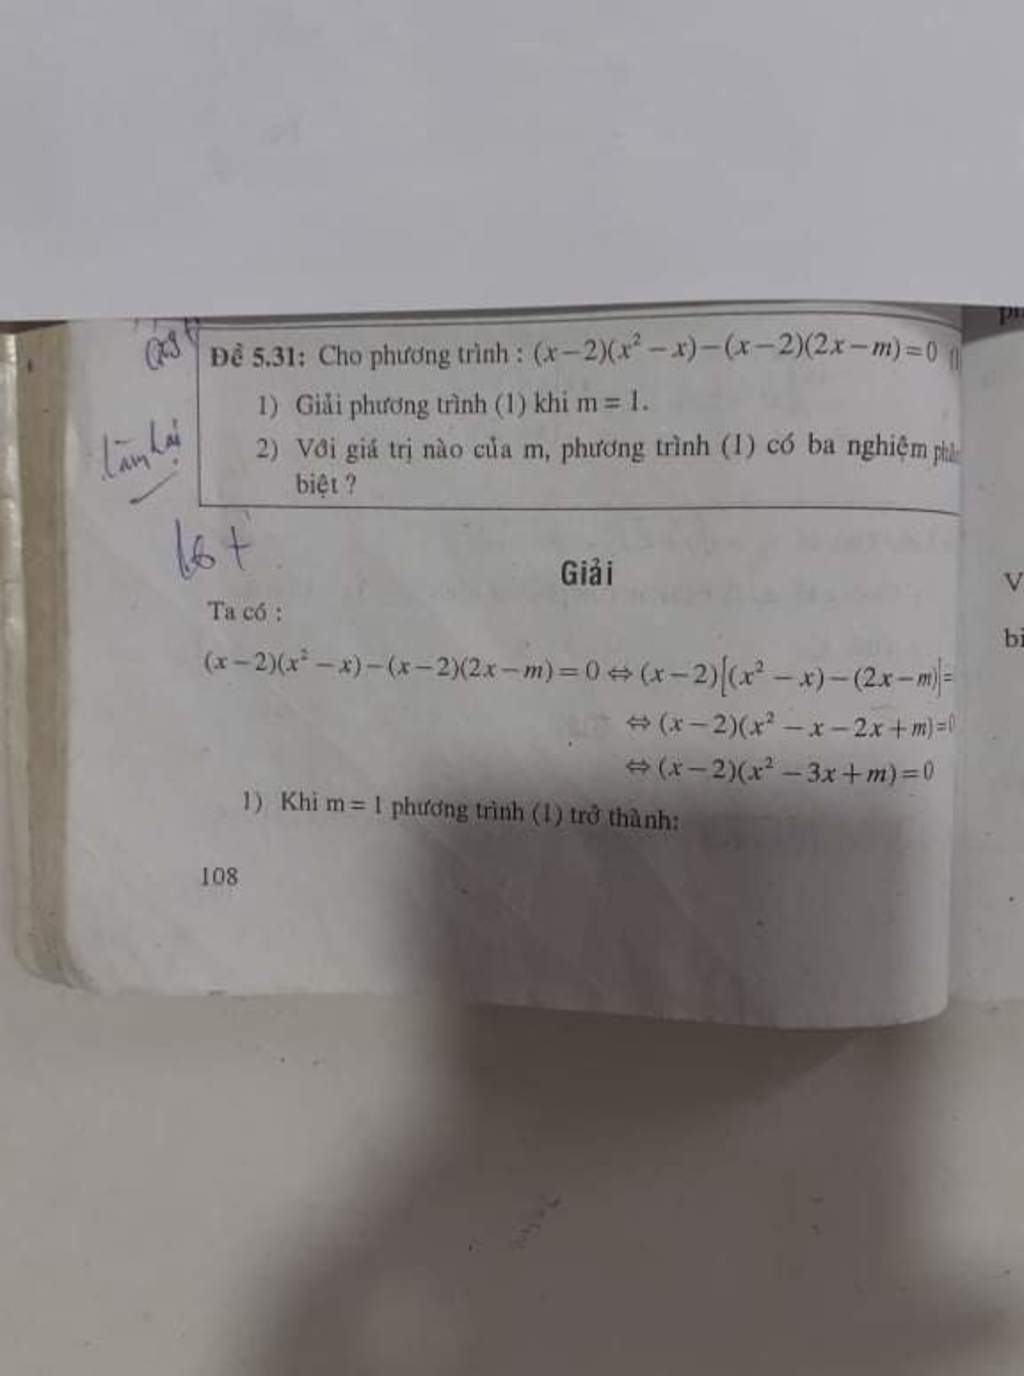 Đề 5.31: Cho phương trình : (x−2)(x² − x)−(x−2)(2x−m)=0
1) Giải phương trình (1) khi m = 1.
làm lại
2) Với giá trị nào của m, phương trình (1) có ba nghiệm
biệt ?
Giải
V
Ta có :
bi
(x−2)(x² − x)−(x−2)(2x−m)=0 ⇔ (x−2)[(x² − x)−(2x−m)]=
⇔ (x−2)(x² − x−2x+m)=0
⇔ (x−2)(x² −3x+m)=0
1) Khi m = 1 phương trình (1) trở thành:
108